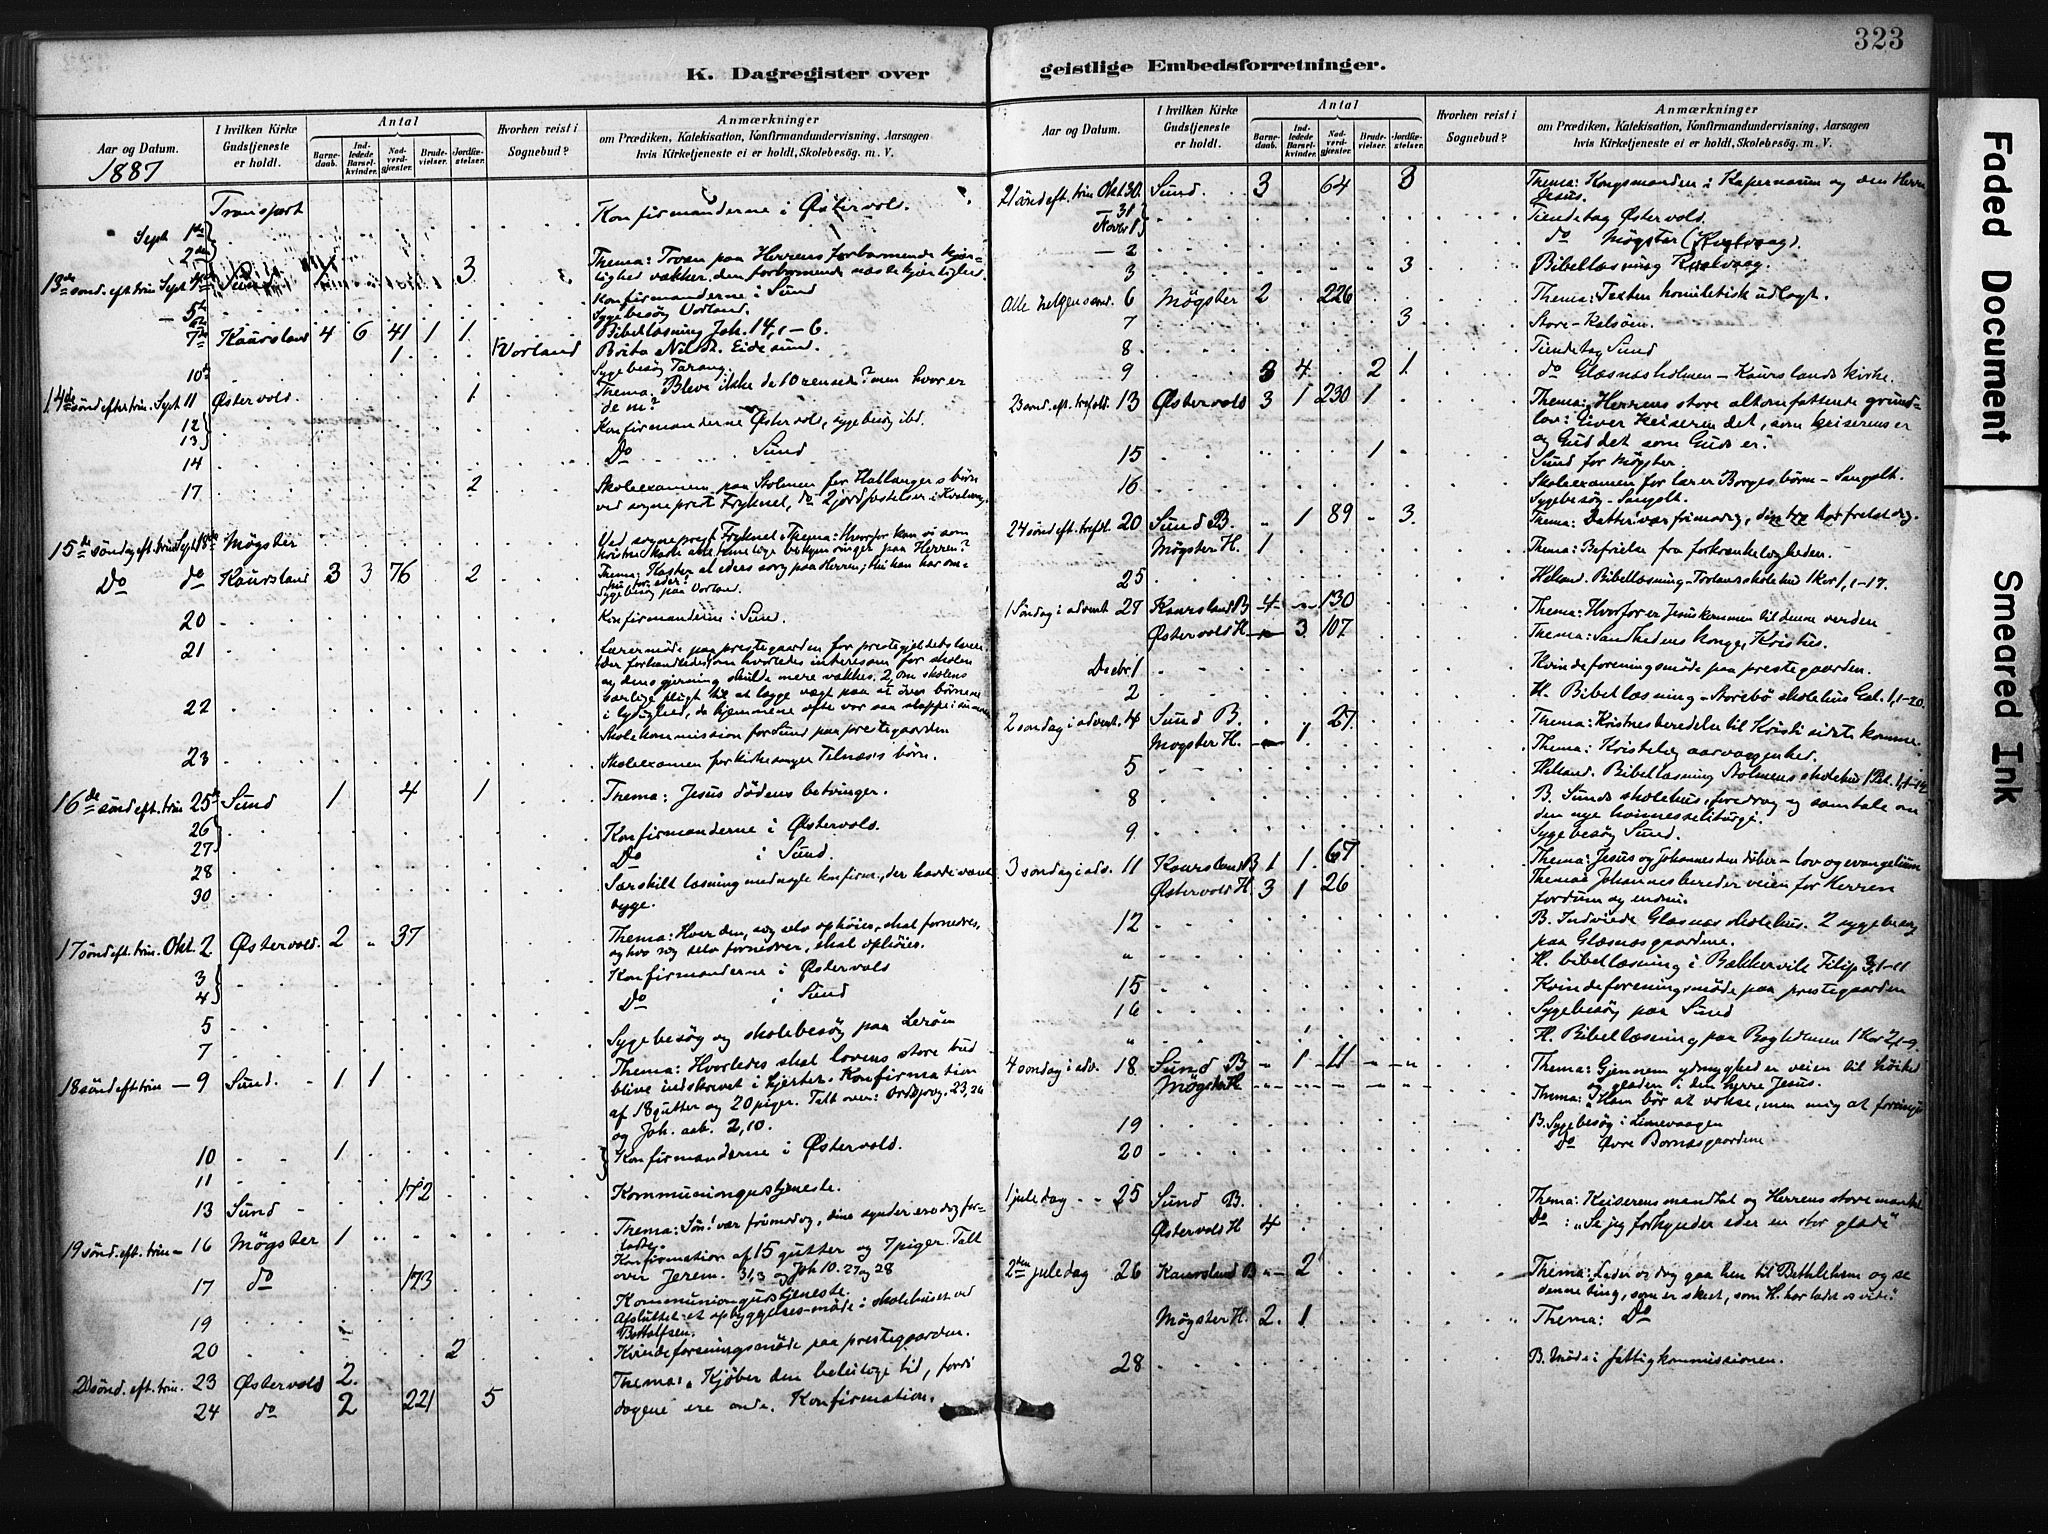 323
K. Dagregister over
geistlige Embedsforretninger.
Aar og Datum.
1887
I hvilken Kirke
Gudstjeneste
er holdt.
Antal
Barne-
daab.
Ind-
ledede
Barsel-
kvinder.
Nad-
verd-
gjæster.
Brude-
vielser.
Jordfæ-
stelser.
Hvorhen reist i
Sognebud?
Anmærkninger
om Prædiken, Katekisation, Konfirmandundervisning, Aarsagen
hvis Kirketjeneste ei er holdt, Skolebesøg. m. V.
Transport
Sept 1ste Konfirmanderne i Østervold.
2den
13de sønd. eft. trin Sept 4de Sund 3 Thema: Troen paa Herrens forbarmende kjær-
lighed vækker den forbarmende næstekjærlighed.
Konfirmanderne i Sund
5te
Sygebesøg Vorland.
7de Kaursland 4 6 41 1 1 Bibellæsning Joh. 14, 1-6.
1 Vorland Brita Nilsd. Eidesund.
10de Sygebesøg Tarang.
14de sønd efter trin. Sept 11 Østervold. 1 Thema: Bleve ikke de 10 rensede? men hvor er
de 9?
12 Konfirmanderne Østervold, sygebesøg ibd.
13
14 Do Sund
17 2 Skoleexamen paa Stolmen for Hallangers børn
ved sogneprest Fryknel, do 2 jordfæstelser i Kvalvaag.
15de søndag eft. trin Sept 18de Møgster Ved sogneprest Fryknel. Thema: Hvorfor kan vi som
kristne kaste alle timelige bekymringer paa Herren?
Do do Kaursland 3 3 76 2 Thema: Kaster al eders sorg paa Herren; thi han har om-
hu for eder!
Sygebesøg paa Vorland.
20 Konfirmanderne i Sund.
21 Lærermøde paa prestegaarden for prestegjeldets lærere
der forhandledes om hvorledes interessen for skolen
og dens gjerning skulde mere vækkes. 2, Om skolens
særlige pligt til at lægge vægt paa at øve børnene
22 i lydighed, da hjemmene ofte var saa slappe i saa maade
Skolekommission for Sund paa prestegaarden
23 Skoleexamen for kirkesanger Telnæs's børn.
16de sønd eft. trin. 25de Sund 1 4 1 Thema: Jesus dødens betvinger.
26 Konfirmanderne i Østervold.
27
28 Do i Sund.
30 Særskilt læsning med nogle konfirm., der havde været
syge.
17 sønd eft. trin. Okt. 2 Østervold. 2 " 37 Thema: Hver den, sig selv ophøier, skal fornedres,
og hvo sig selv fornedrer, skal ophøies.
3 Konfirmanderne i Østervold
4
5 Do i Sund
7 Sygebesøg og skolebesøg paa Lerøen
18 sønd eft. trin — 9 Sund. 1 1 Thema: Hvorledes skal lovens store bud
blive indskrevet i hjerter. Konfirmation
af 18 gutter og 20 piger. Talt over: Ordsprog. 23, 26
og Joh. aab. 2, 10.
10 1 Konfirmanderne i Østervold.
11
13 Sund 172 Kommuniongustjeneste.
19 sønd. eft. trin — 16 Møgster 1 Thema: Søn! vær frimodig, dine synder ere dig for-
ladte.
Konfirmation af 15 gutter og 7 piger. Talt
over Jerem. 31,3 og Joh 10. 27 og 28
17 do 173 Kommuniongudstjeneste.
19 Afsluttet et opbyggelses-møde i skolehuset ved
Bottolfsen.
20 2 Kvindeforeningsmøde paa prestegaarden.
20 sønd. eft. trin. 23 Østervold 2. Thema: „Kjøber den beleilige tid, fordi
24 do 2 221 5 dagene ere onde. Konfirmation.
Aar og Datum.
I hvilken Kirke
Gudstjeneste
er holdt.
Antal
Barne-
daab.
Ind-
ledede
Barsel-
kvinder.
Nad-
verd-
gjæster.
Brude-
vielser.
Jordfæ-
stelser.
Hvorhen reist i
Sognebud?
Anmærkninger
om Prædiken, Katekisation, Konfirmandundervisning, Aarsagen
hvis Kirketjeneste ei er holdt, Skolebesøg. m. V.
21 sønd eft. trin Okt 30. Sund. 3 64 8 Thema: Kongsmanden i Kapernaum og den Herre
Jesus.
31 Tiendetag Østervold.
Novbr 1
— 2 do Møgster (Kvalvaag).
3 3 Bibellæsning Kvalvaag.
Alle helgens sønd. 6 Møgster 2 226 Thema: Texten homiletisk udlagt.
7 3 Store-Kalsøen.
8 Tiendetag Sund
9 3 4 2 1 do Glæsnæsholmen — Kaurslands kirke.
23 sønd. eft. trefold. 13 Østervold 3 1 230 1 Thema: „Herrens store altomfattende grund-
lov: Giver keiseren det, som keiserens er
og Gud det som Guds er.“
15 1 Sund for Møgster
16 Skoleexamen for lærer Borges børn — Sangolt.
Sygebesøg — Sangolt.
24 sønd eft. trefdt. 20 Sund B. " 1 89 " 3. Thema: Datter! vær frimodig, din tro har frelst dig.
Møgster H. 1 Thema: Befrielse fra forkrænkeligheden.
25 Helland. Bibellæsning — Torlands skolehus 1 Kor 1, 1-17.
1 Søndag i advent 27 Kaursland B 4 130 Thema: Hvorfor er Jesus kommen til denne verden
Østervold H. 3 107 Thema: Sandhedens konge, Kristus.
Decbr. 1 Kvindeforeningsmøde paa prestegaarden.
2 H. Bibellæsning — Storebø skolehus Gal. 1, 1-20.
2 søndag i advent. 4 Sund B. 27 Thema: Kristnes beredelse til Kristi sidste komme.
Møgster H. 1 Thema: Kristelig aarvaagenhed.
5 Helland. Bibellæsning Stolmens skolehus 1 Pet. 1, 1-12
8 B. Sunds skolehus, foredrag og samtale om
den nye høimesseliturgi.
9 Sygebesøg Sund.
3 søndag i adv. 11 Kaursland B 1 1. 67 Thema: Jesus og Johannes den døber — lov og evangelium
Østervold H. 3 1 26 Thema: Johannes bereder veien for Herren
fordum og endnu.
12 B. Indviede Glæsnæs skolehus. 2 sygebesøg
paa Glæsnæsgaardene.
" H. bibellæsning i Bækkervik Filip 3, 1-11
15 Kvindeforeningsmøde paa prestegaarden
16 Sygebesøg paa Sund
" H. Bibellæsning paa Bagholmen 1 Kor 2, 1-9.
4 søndag i adv. 18 Sund B 1 11 Thema: Gjennem ydmyghed er veien til høihed
og glæden i den herre Jesus.
Møgster H Thema: „Ham bør at vokse, men mig at forringes
19 B. Sygebesøg i Limevaagen
20 Do Øvre Bornæsgaardene
1 juledag 25 Sund B. Thema: Keiserens mandtal og Herrens store mandtal
Østervold H 4 Do : „Se jeg forkynder eder en stor glæde“
2den juledag 26 Kaursland B 2 Thema: Lader os dog gaa hen til Bethlehem og se
denne ting, som er skeet, som H. har ladet os vide“.
Møgster H. 2. 1 Thema: Do
28 B. Møde i fattigkommissionen.
Faded Document
Smeared Ink